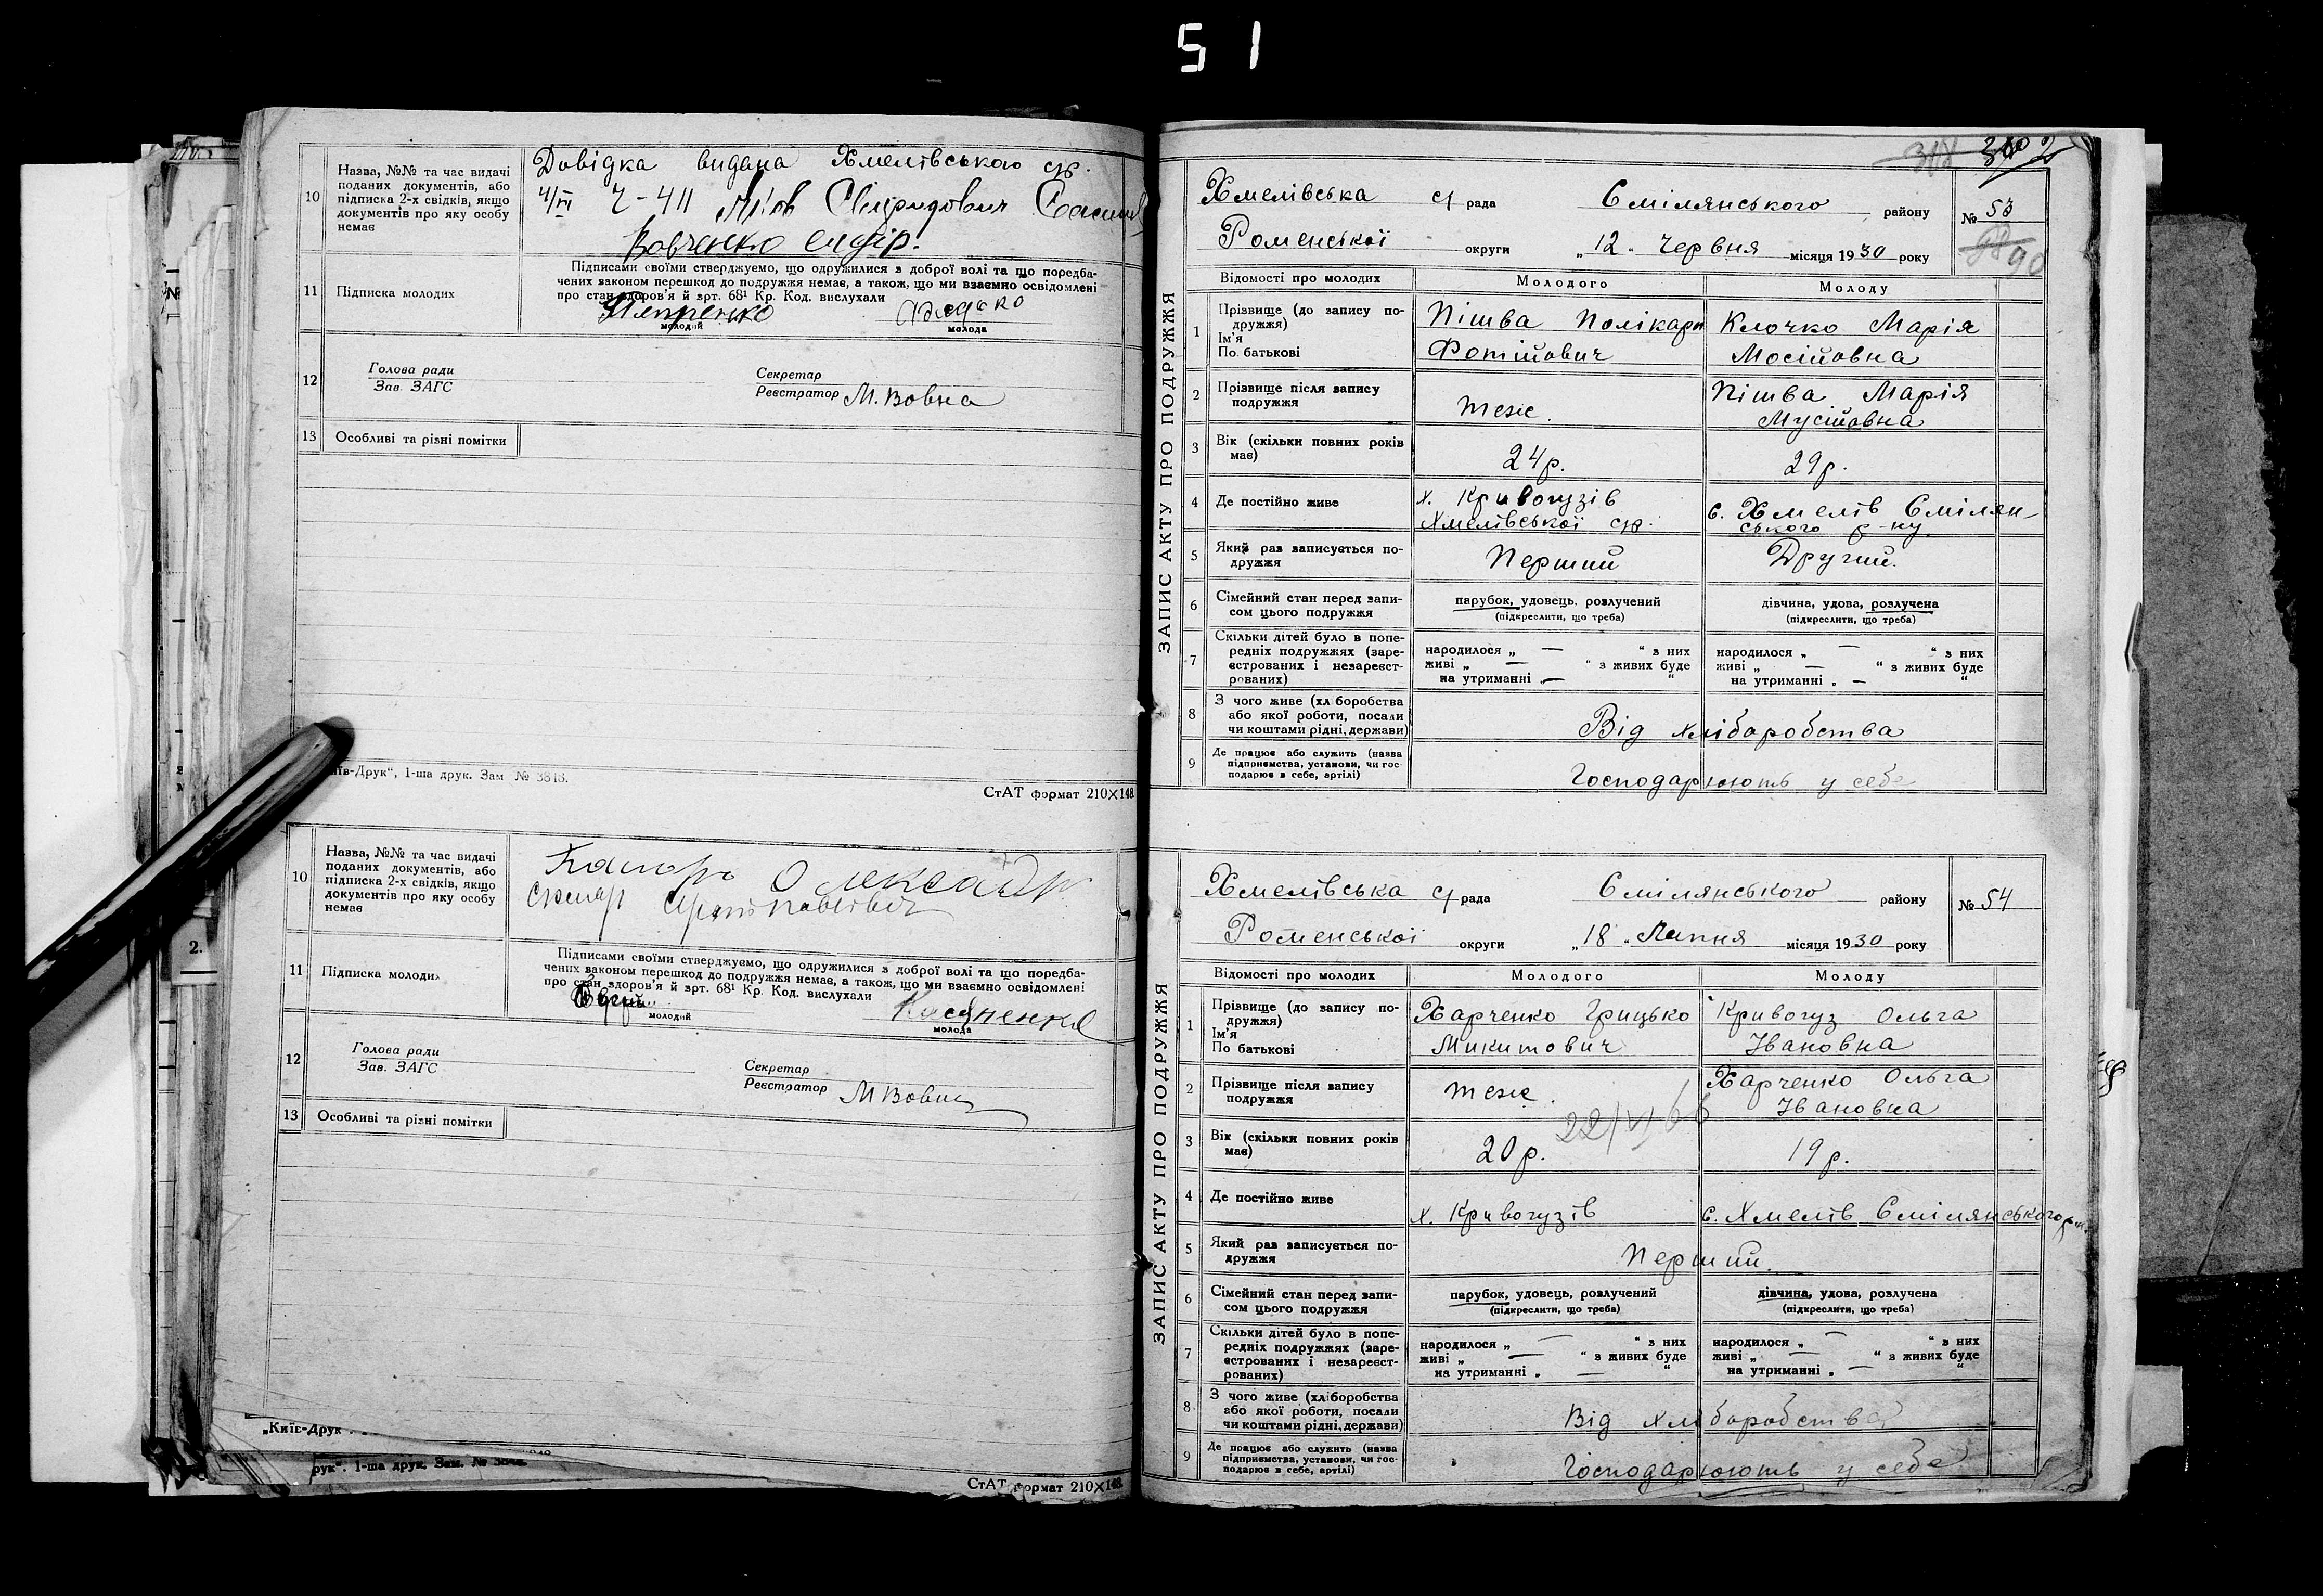 51
10 Назва, №№ та час видачі
поданих документів, або
підписка 2-х свідків, якщо
документів про яку особу
немає
Довідка видана Хмелівською ср.
4/VI Ч-411
Вовченко
11 Підписка молодих
Підписами своїми стверджуємо, що одружилися з доброї волі та що поредба-
чених законом перешкод до подружжя немає, а також, що ми взаємно освідомлені
про стан здоров'я й зрт. 68¹ Кр. Код. вислухали
молодий молода
12 Голова ради
Зав. ЗАГС
Секретар
Реєстратор М. Вовна
13 Особливі та різні помітки
їв-Друк“, 1-ша друк. Зам № 3818.
СтАТ формат 210×148
10 Назва, №№ та час видачі
поданих документів, або
підписка 2-х свідків, якщо
документів про яку особу
немає
Олександр
11 Підписка молодих
Підписами своїми стверджуємо, що одружилися з доброї волі та що поредба-
чених законом перешкод до подружжя немає, а також, що ми взаємно освідомлені
про стан здоров'я й зрт. 68¹ Кр. Код. вислухали
молодий молода
12 Голова ради
Зав. ЗАГС
Секретар
Реєстратор М Вовна
13 Особливі та різні помітки
„Київ-Друк
рук“. 1-ша друк. Зам. №
СтАТ формат 210×148
2.
ЗАПИС АКТУ ПРО ПОДРУЖЖЯ
Хмелівська с/рада Смілянського району № 53
Роменської округи „12„ Червня місяця 1930 року
90
Відомості про молодих Молодого Молоду
1 Прізвище (до запису по-
дружжя)
Ім'я
По батькові
Пішва Полікарп
Фотійович
Клочко Марія
Мосійовна
2 Прізвище після запису
подружжя
теж.
Пішва Марія
Мусійовна
3 Вік (скільки повних років
має)
24р. 29р.
4 Де постійно живе
х. Кривогузів
Хмелівської ср.
с. Хмелів Смілян-
ського р-ну
5 Який раз записується по-
дружжя
Перший Другий.
6 Сімейний стан перед запи-
сом цього подружжя
парубок, удовець, розлучений
(підкреслити, що треба)
дівчина, удова, розлучена
(підкреслити, що треба)
7 Скільки дітей було в попе-
редніх подружжях (заре-
єстрованих і незареєст-
рованих)
народилося „ — “ з них
живі „ — “ з живих буде
на утриманні „ — “
народилося „ — “ з них
живі „ — “ з живих буде
на утриманні „ — “
8 З чого живе (хл боробства
або якої роботи, посали
чи коштами рідні, держави)
Від хліборобства
9 Де працює або служить (назва
підприємства, установи, чи гос-
подарює в себе, артілі)
Господарюють у себе
ЗАПИС АКТУ ПРО ПОДРУЖЖЯ
Хмелівська с/рада Смілянського району № 54
Роменської округи „18„ Липня місяця 1930 року
Відомості про молодих Молодого Молоду
1 Прізвище (до запису по-
дружжя)
Ім'я
По батькові
Харченко Грицько
Микитович
Кривогуз Ольга
Івановна
2 Прізвище після запису
подружжя
теж.
Харченко Ольга
Івановна
3 Вік (скільки повних років
має)
20р. 19р.
4 Де постійно живе
х. Кривогузів
с. Хмелів Смілянського
5 Який раз записується по-
дружжя
Перший.
6 Сімейний стан перед запи-
сом цього подружжя
парубок, удовець, розлучений
(підкреслити, що треба)
дівчина, удова, розлучена
(підкреслити, що треба)
7 Скільки дітей було в попе-
редніх подружжях (заре-
єстрованих і незареєст-
рованих)
народилося „ — “ з них
живі „ — “ з живих буде
на утриманні „ — “
народилося „ — “ з них
живі „ — “ з живих буде
на утриманні „ — “
8 З чого живе (хліборобства
або якої роботи, посали
чи коштами рідні, держави)
Від хліборобства
9 Де працює або служить (назва
підприємства, установи, чи гос-
подарює в себе, артілі)
Господарюють у себе